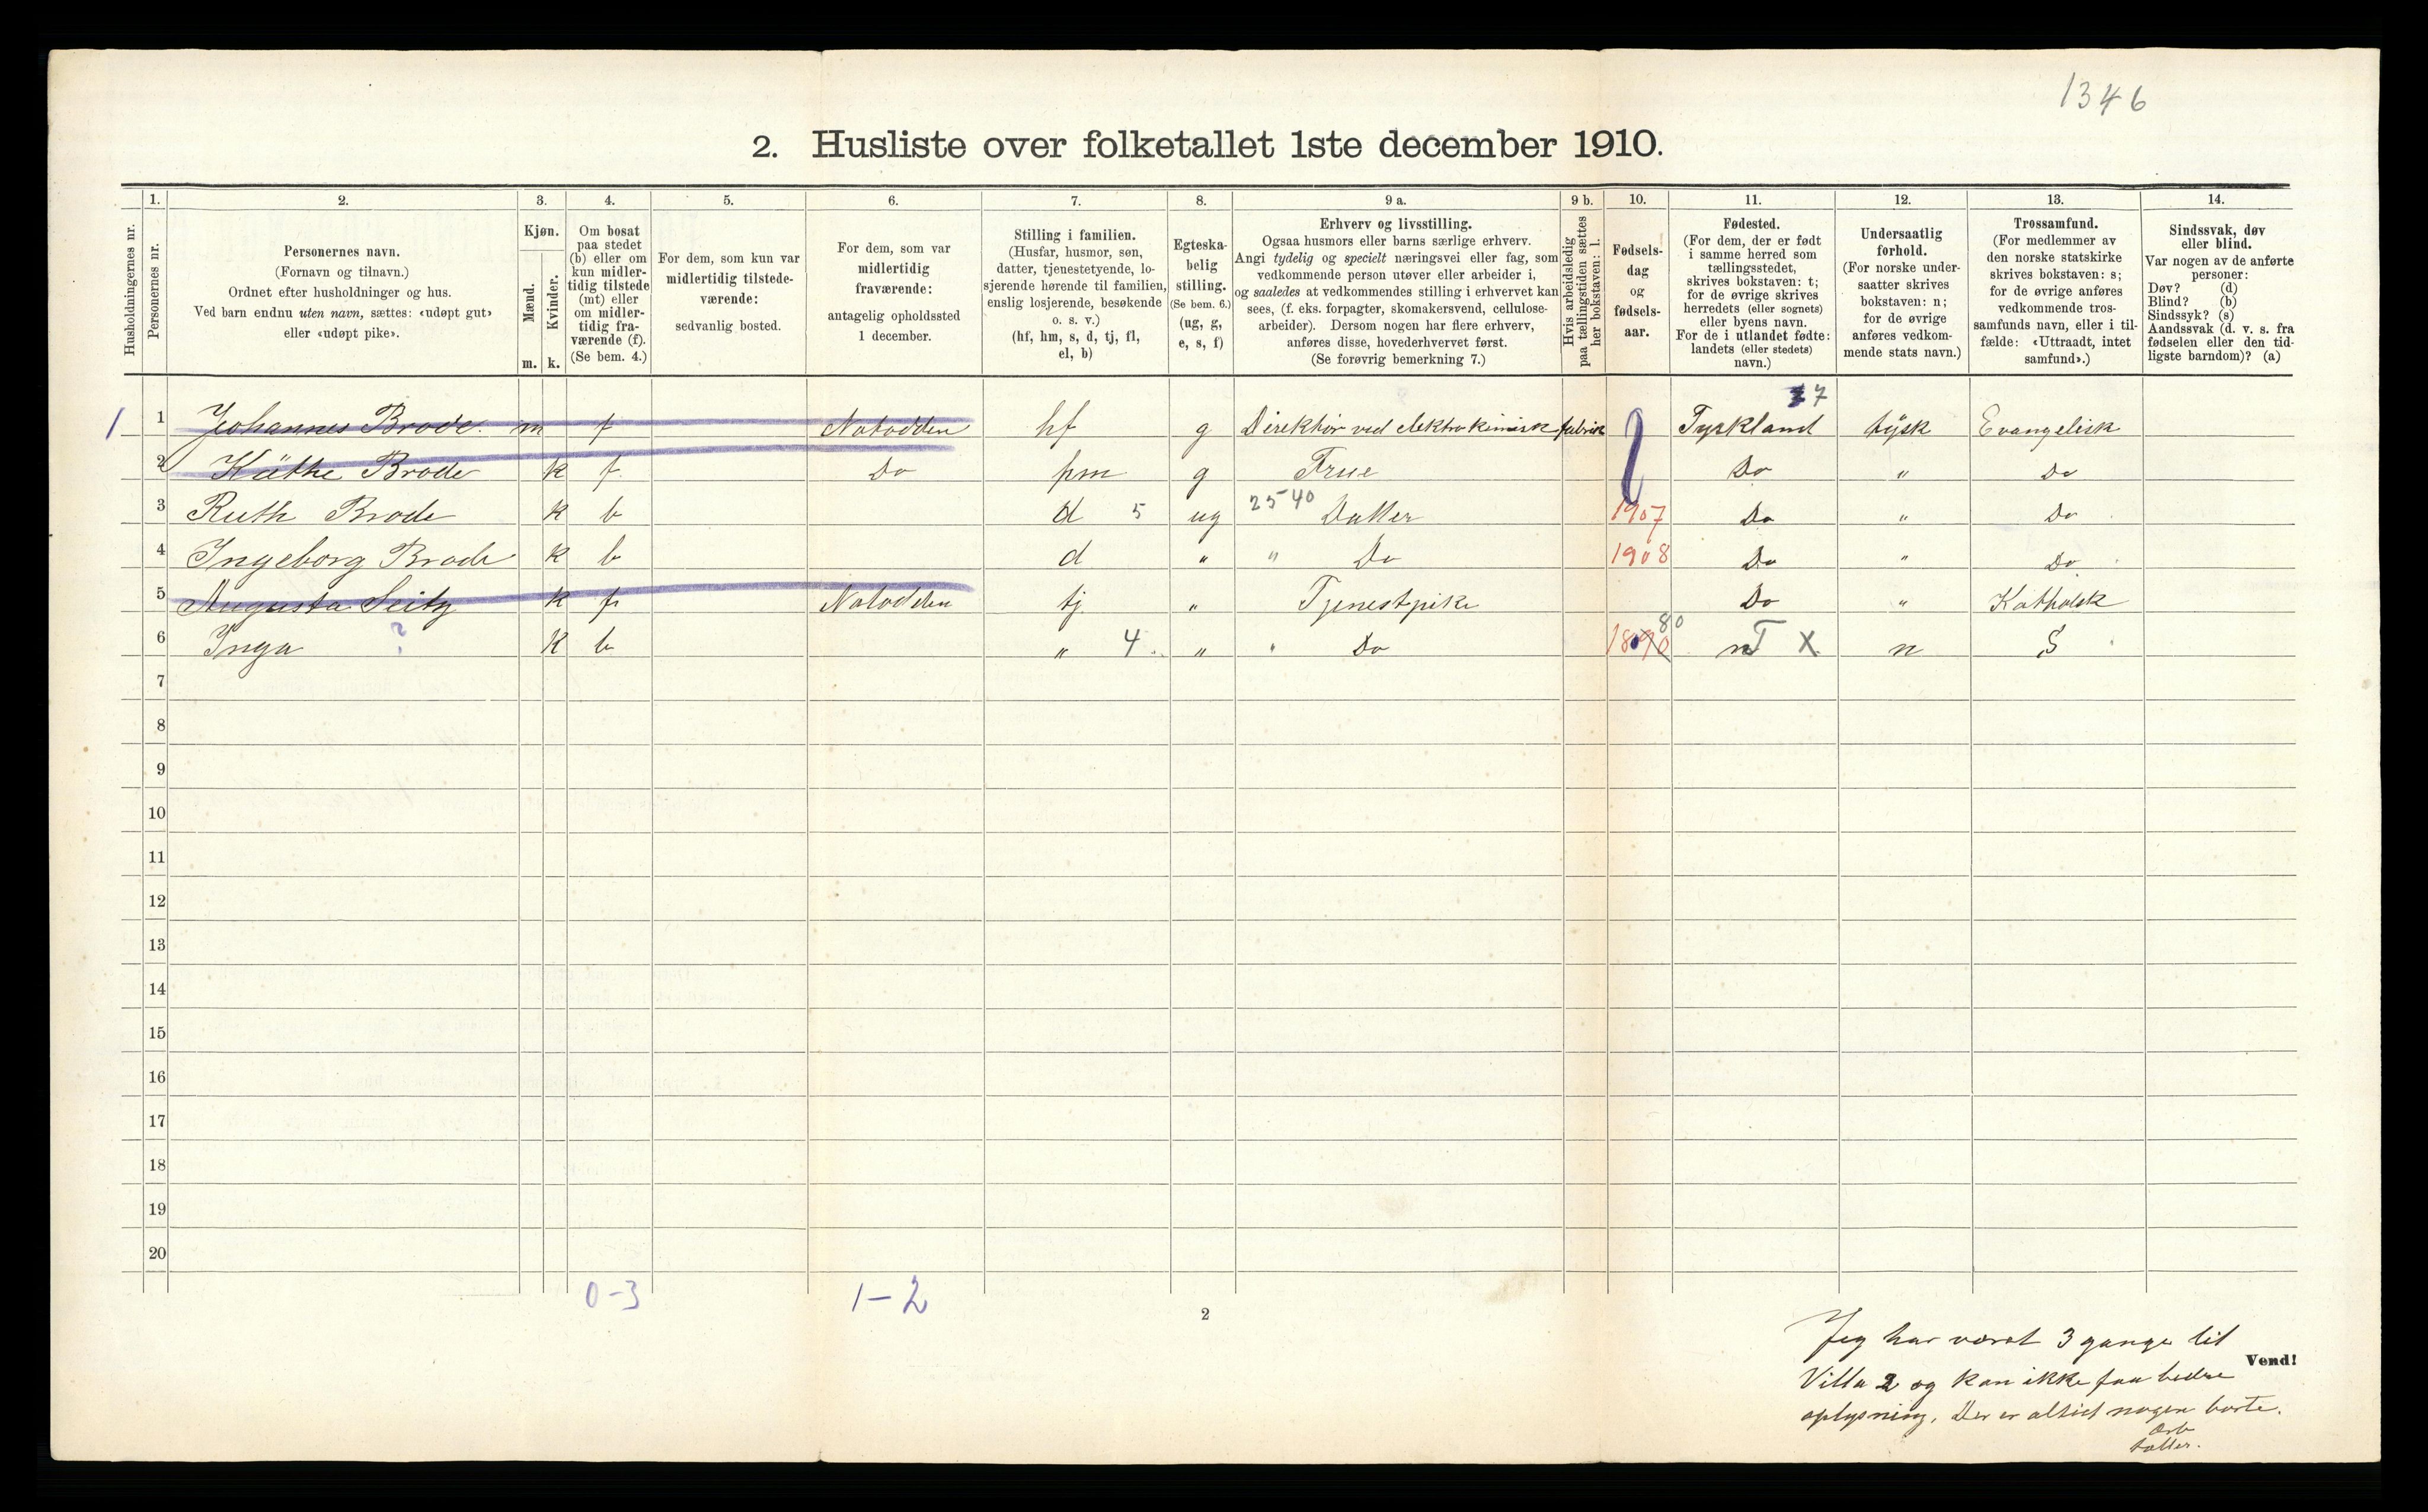 1346
2. Husliste over folketallet 1ste december 1910.
Husholdningernes nr.
1. 2. 3. 4. 5. 6. 7. 8. 9 a. 9 b. 10. 11. 12. 13. 14.
Personernes nr.
Personernes navn.
(Fornavn og tilnavn.)
Ordnet efter husholdninger og hus.
Ved barn endnu uten navn, sættes: «udøpt gut»
eller «udøpt pike».
Kjøn.
Mænd.
Kvinder.
m. k.
Om bosat
paa stedet
(b) eller om
kun midler-
tidig tilstede
(mt) eller
om midler-
tidig fra-
værende (f).
(Se bem. 4.)
For dem, som kun var
midlertidig tilstede-
værende:
sedvanlig bosted.
For dem, som var
midlertidig
fraværende:
antagelig opholdssted
1 december.
Stilling i familien.
(Husfar, husmor, søn,
datter, tjenestetyende, lo-
sjerende hørende til familien,
enslig losjerende, besøkende
o. s. v.)
(hf, hm, s, d, tj, fl,
el, b)
Egteska-
belig
stilling.
(Se bem. 6.)
(ug, g,
e, s, f)
Erhverv og livsstilling.
Ogsaa husmors eller barns særlige erhverv.
Angi tydelig og specielt næringsvei eller fag, som
vedkommende person utøver eller arbeider i,
og saaledes at vedkommendes stilling i erhvervet kan
sees, (f. eks. forpagter, skomakersvend, cellulose-
arbeider). Dersom nogen har flere erhverv,
anføres disse, hovederhvervet først.
(Se forøvrig bemerkning 7.)
Hvis arbeidsledig
paa tællingstiden sættes
her bokstaven: l.
Fødsels-
dag
og
fødsels-
aar.
Fødested.
(For dem, der er født
i samme herred som
tællingsstedet,
skrives bokstaven: t;
for de øvrige skrives
herredets (eller sognets)
eller byens navn.
For de i utlandet fødte:
landets (eller stedets)
navn.)
Undersaatlig
forhold.
(For norske under-
saatter skrives
bokstaven: n;
for de øvrige
anføres vedkom-
mende stats navn.)
Trossamfund.
(For medlemmer av
den norske statskirke
skrives bokstaven: s;
for de øvrige anføres
vedkommende tros-
samfunds navn, eller i til-
fælde: «Uttraadt, intet
samfund».)
Sindssvak, døv
eller blind.
Var nogen av de anførte
personer:
Døv? (d)
Blind? (b)
Sindssyk? (s)
Aandssvak (d. v. s. fra
fødselen eller den tid-
ligste barndom)? (a)
7
1 1 Johannes Brode. m f Notodden hf g Direktør ved elektrokimisk fabrik Tyskland tysk Evangelisk
2 Käthe Brode k f Do hm g Frue Do " Do
3 Ruth Brode k b d 5 ug 25-40 Datter 1907 Do " Do
4 Ingeborg Brode k b d " " Do 1908 Do " Do
5 Augusta Seitz k f Notodden tj " Tjenestpike Do " Katholsk
80
6 Inga ? k b " 4 " " Do 1890 n T X n S
7
8
9
10
11
12
13
14
15
16
17
18
19
20
0-3 1-2
2
Jeg har været 3 gange til
Vend!
Villa 2 og kan ikke faa bedre
oplysning, Der er altid nogen borte.
tæller.